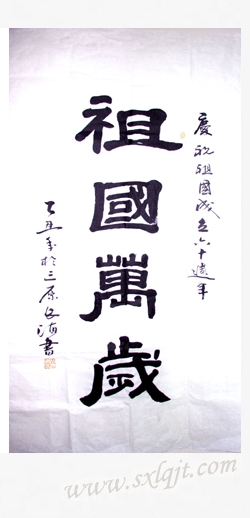 慶祝祖國成立六十週年
祖國萬歲
己丑年於三原
書
www.sxlqjt.com